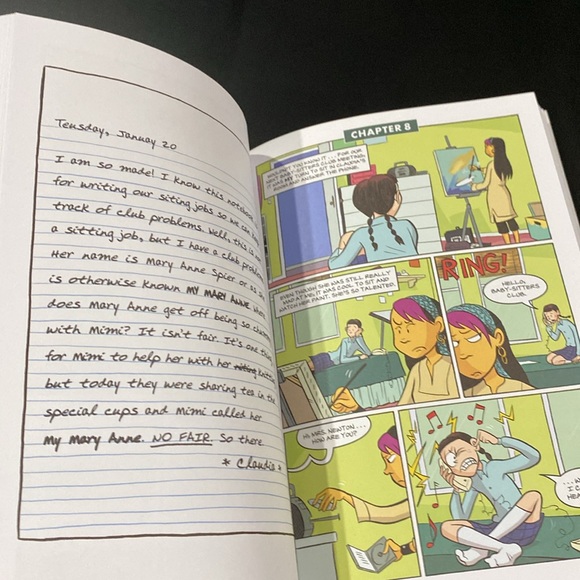 Teusday, January 20
I am so made! I know this notebook
for writing our siting jobs so we can
track of club problems. Well, this is
a sitting job, but I have a club problem
Her name is Mary Anne Spier or as
is otherwise known MY MARY ANNE
does Mary Anne get off being so
with Mimi? It isn't fair. It's one thing
for Mimi to help her with her
but today they were sharing tea in the
special cups and Mimi called her
my Mary Anne. NO FAIR. So there.
* Claudia *
CHAPTER 8
WOULDN'T YOU KNOW IT... FOR OUR
NEXT BABY-SITTERS CLUB MEETING,
IT WAS MY TURN TO SIT IN CLAUDIA'S
ROOM AND ANSWER THE PHONE.
EVEN THOUGH SHE WAS STILL REALLY
MAD AT ME, IT WAS COOL TO SIT AND
WATCH HER PAINT. SHE'S SO TALENTED.
RING!
HELLO,
BABY-SITTERS
CLUB.
HI MRS. NEWTON...
HOW ARE YOU?
I C
HEA